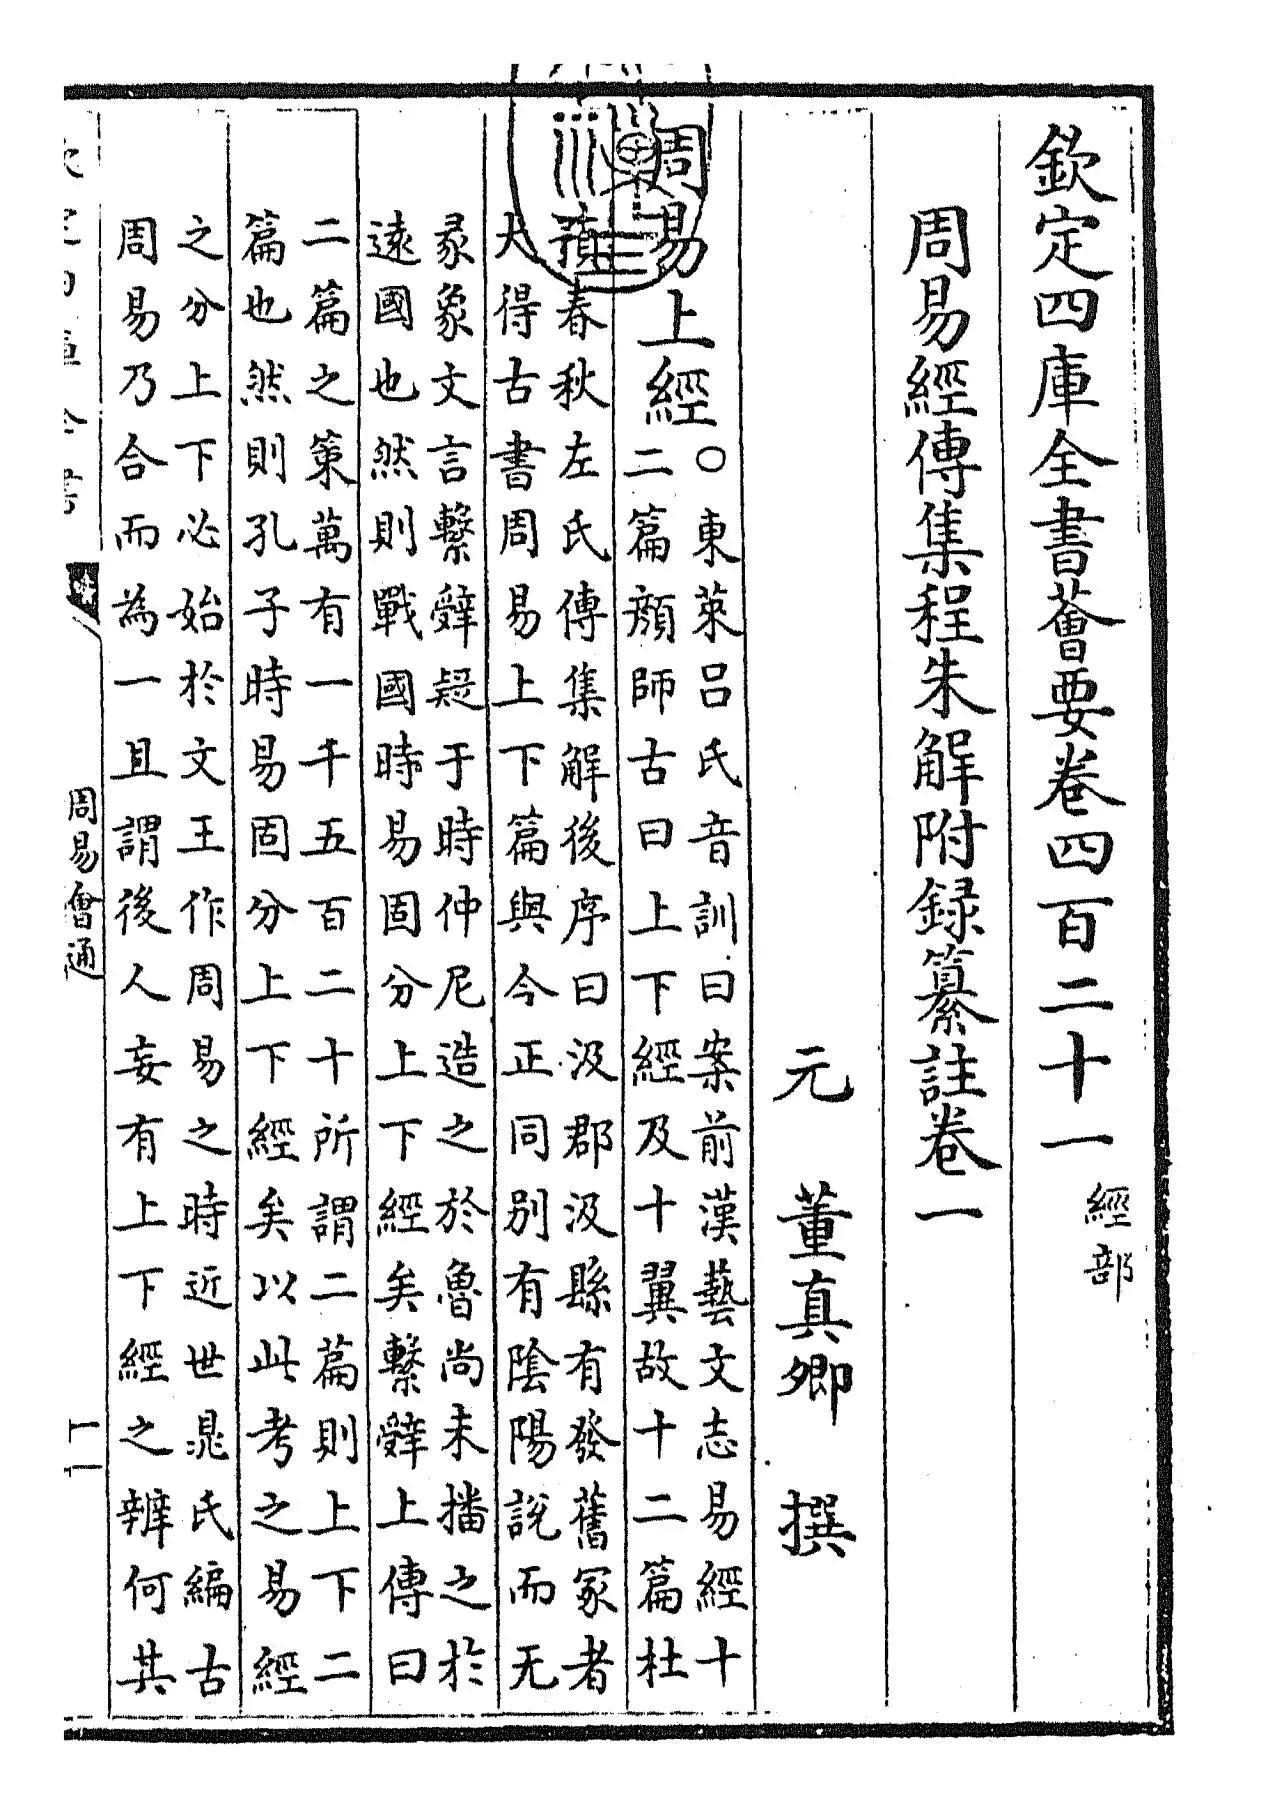 欽定四庫全書薈要卷四百二十一 經部
周易經傳集程朱解附録纂註卷一
元 董真卿 撰
周易上經○東萊呂氏音訓曰案前漢藝文志易經十
二篇顔師古曰上下經及十翼故十二篇杜
預春秋左氏傳集解後序曰汲郡汲縣有發舊冢者
大得古書周易上下篇與今正同别有陰陽說而无
彖象文言繫辭疑于時仲尼造之於魯尚未播之於
逺國也然則戰國時易固分上下經矣繫辭上傳曰
二篇之策萬有一千五百二十所謂二篇則上下二
篇也然則孔子時易固分上下經矣以此考之易經
之分上下必始於文王作周易之時近世晁氏編古
周易乃合而為一且謂後人妄有上下經之辨何其
周易會通